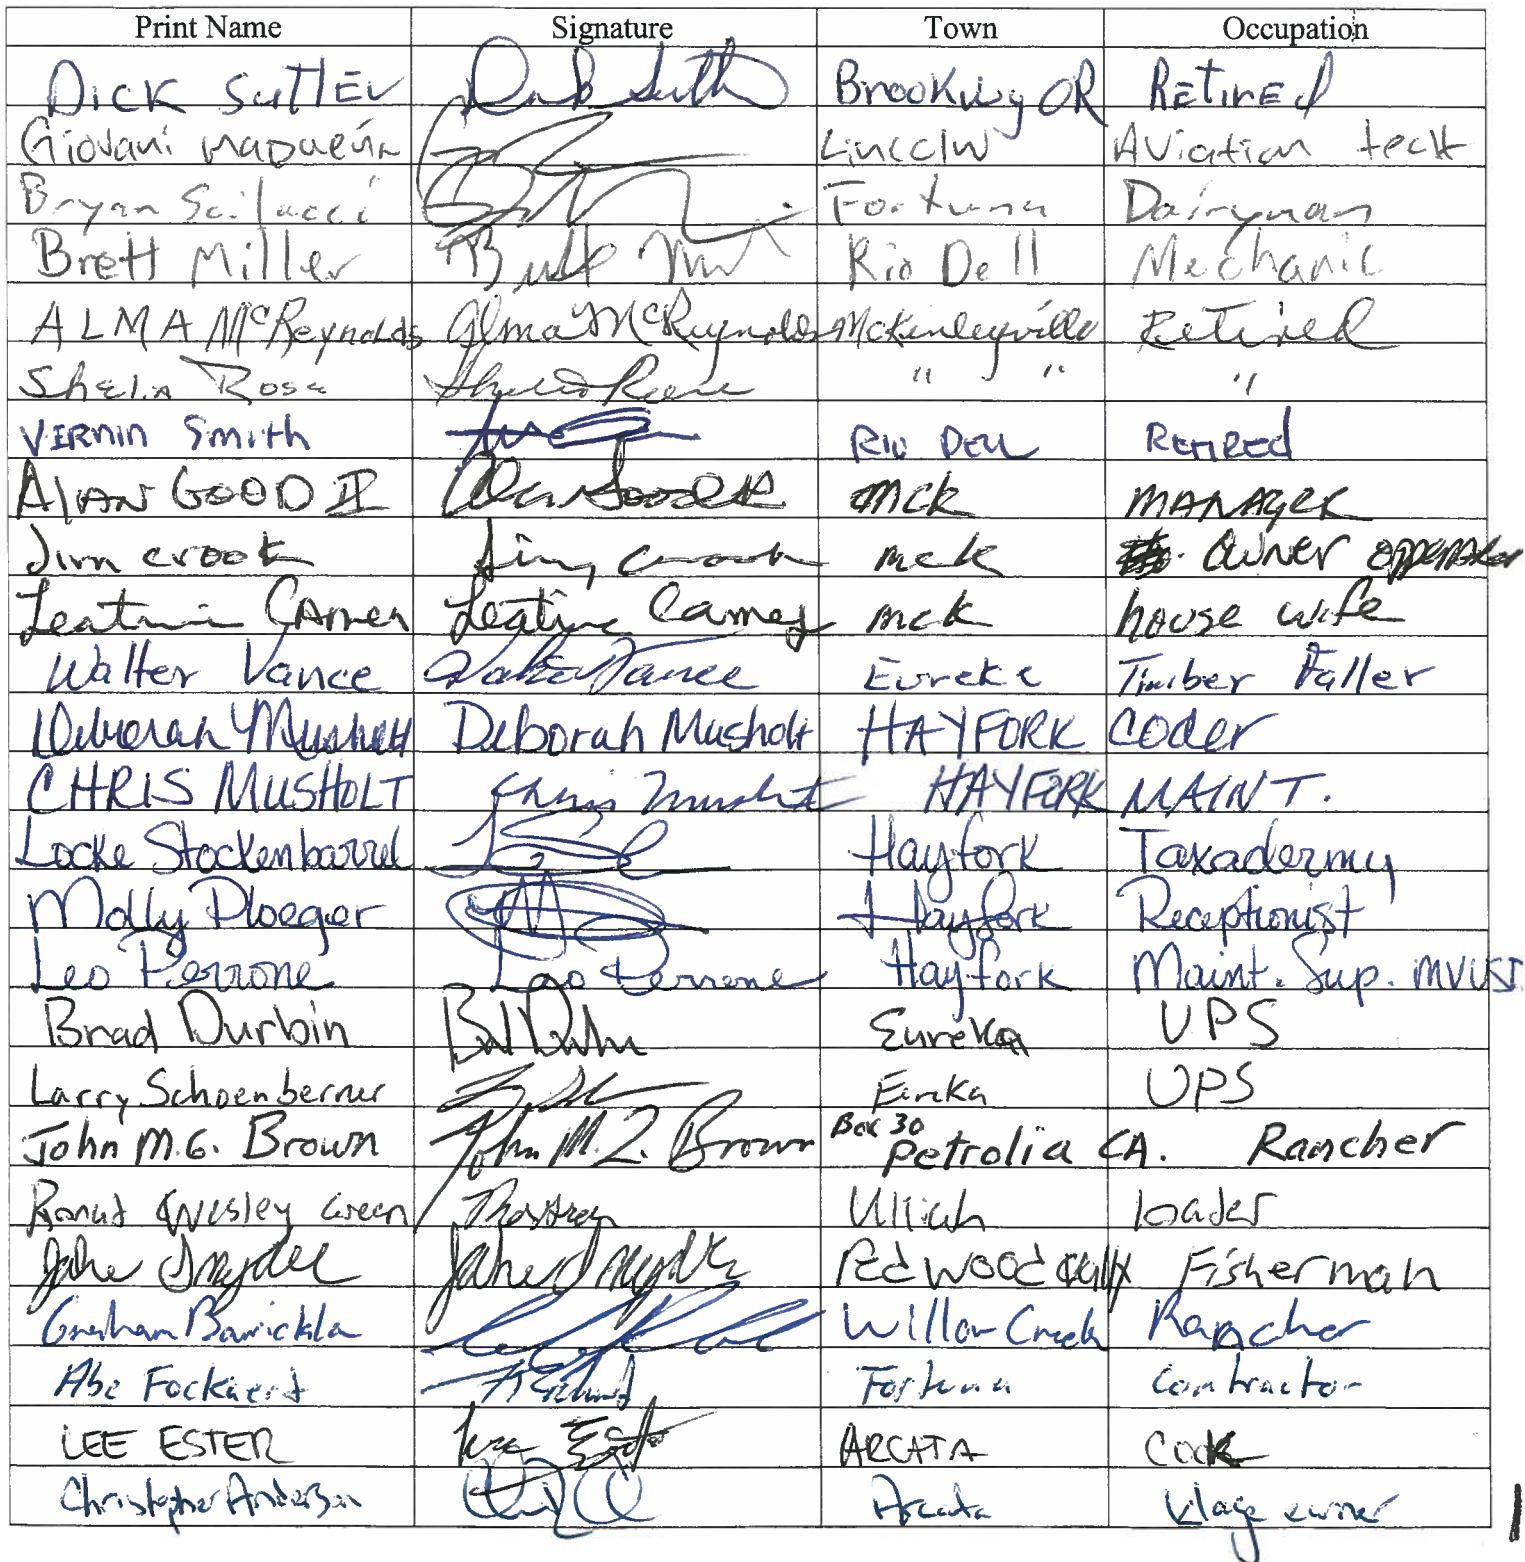 Print Name Signature Town Occupation
Dick Brooking OR Retired
Giovani Lincoln Aviation tech
Bryan Fortuna Dairyman
Brett Miller Rio Dell Mechanic
ALMA McReynolds Alma McReynolds McKinleyville Retired
Shelia Rose " " "
Vernin Smith Rio Dell Retired
Alan GOOD II mck MANAGER
Jim crook Jim crook mck owner
mck house wife
Walter Vance Walter Vance Eureka Timber Faller
Deborah Musholt Deborah Musholt HAYFORK coder
CHRIS MUSHOLT Chris Musholt HAYFORK MAINT.
Locke Stockenbarrel Hayfork Taxadermy
Molly Ploeger Hayfork Receptionist
Leo Perrone Leo Perrone Hayfork Maint. Sup.
Brad Durbin Eureka UPS
Larry Schoenberner UPS
John M.G. Brown John M. G. Brown Box 30 Petrolia CA. Rancher
Wesley Green loader
Jake Snyder Jake Snyder Redwood Fisherman
Willow Creek Rancher
Abe Fortuna Contractor
LEE ESTER Lee Ester ARCATA Cook
Christopher Anderson Arcata owner